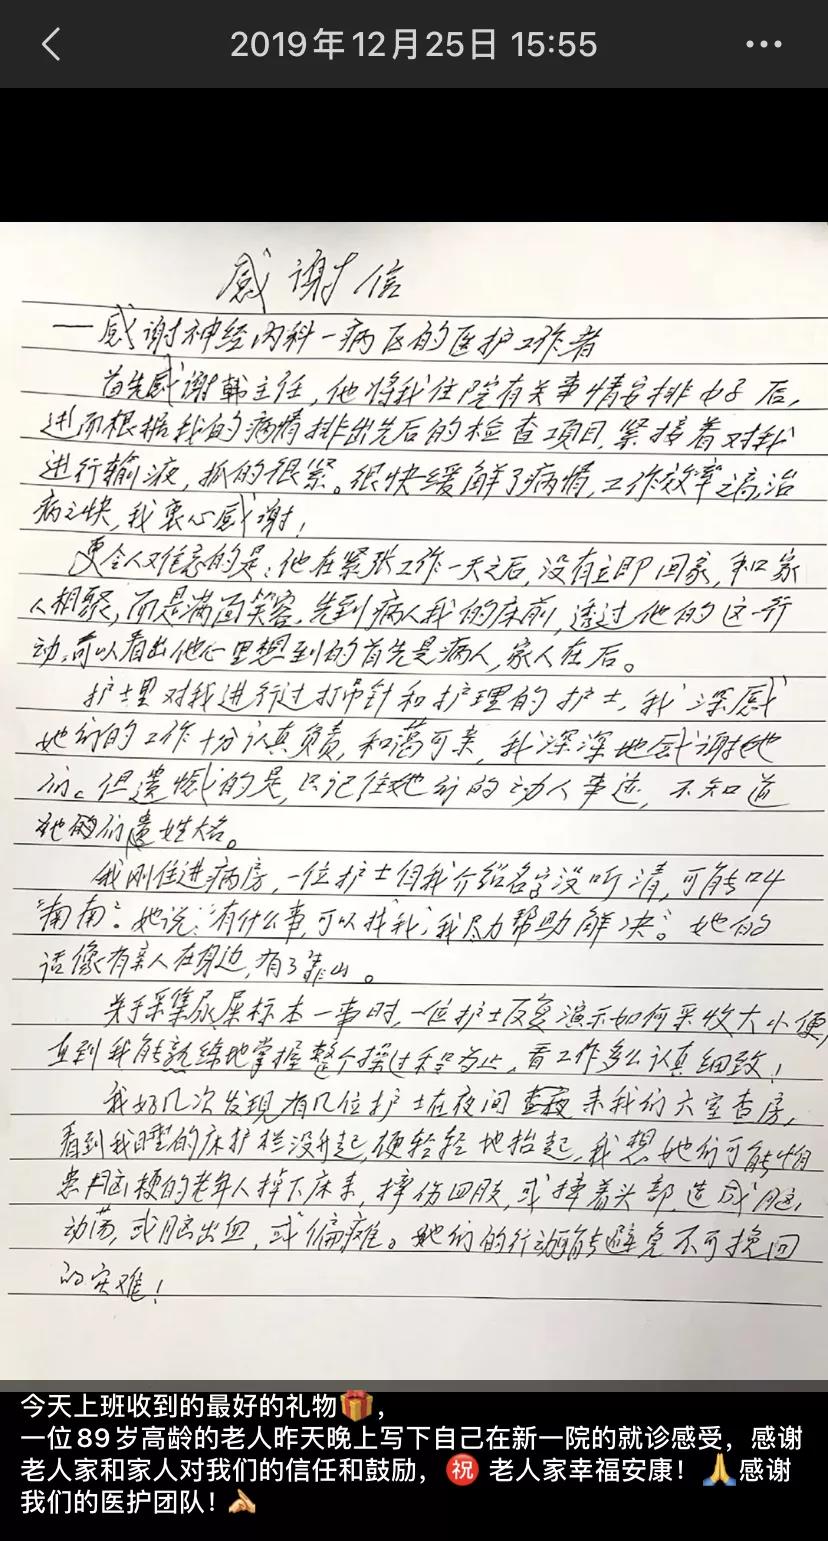 2019年12月25日 15:55
感谢信
一感谢神经内科一病区的医护工作者
首先感谢韩主任，他将我住院有关事情安排好后，
进而根据我的病情排出先后的检查项目，紧接着对我
进行输液，抓的很紧。很快缓解了病情，工作效率之高，治
病之快，我衷心感谢！
更令人难忘的是：他在紧张工作一天之后，没有立即回家，和家
人相聚，而是满面笑容，先到病人我的床前，透过他的这一行
动，可以看出他心里想到的首先是病人，家人在后。
护士里对我进行过打吊针和护理的护士，我深感
她们的工作十分认真负责，和蔼可亲，我深深地感谢她
们。但遗憾的是，只记住她们的动人事迹，不知道
她们姓名。
我刚住进病房，一位护士向我介绍名字没听清，可能叫
“南南”。她说：“有什么事，可以找我，我尽力帮助解决”。她的
话像有亲人在身边，有了靠山。
关于采集尿屎标本一事时，一位护士反复演示如何采收大小便，
直到我能熟练地掌握整个操过程为止，看工作多么认真细致！
我好几次发现有几位护士在夜间来我们六室查房，
看到我睡的床护栏没升起，便轻轻地抬起，我想她们可能怕
患脑梗的老年人掉下床来，摔伤四肢，或摔着头部，造成脑
动荡，或脑出血，或偏瘫。她们的行动能避免不可挽回
的灾难！
今天上班收到的最好的礼物🎁，
一位89岁高龄的老人昨天晚上写下自己在新一院的就诊感受，感谢
老人家和家人对我们的信任和鼓励，㊗️老人家幸福安康！🙏感谢
我们的医护团队！